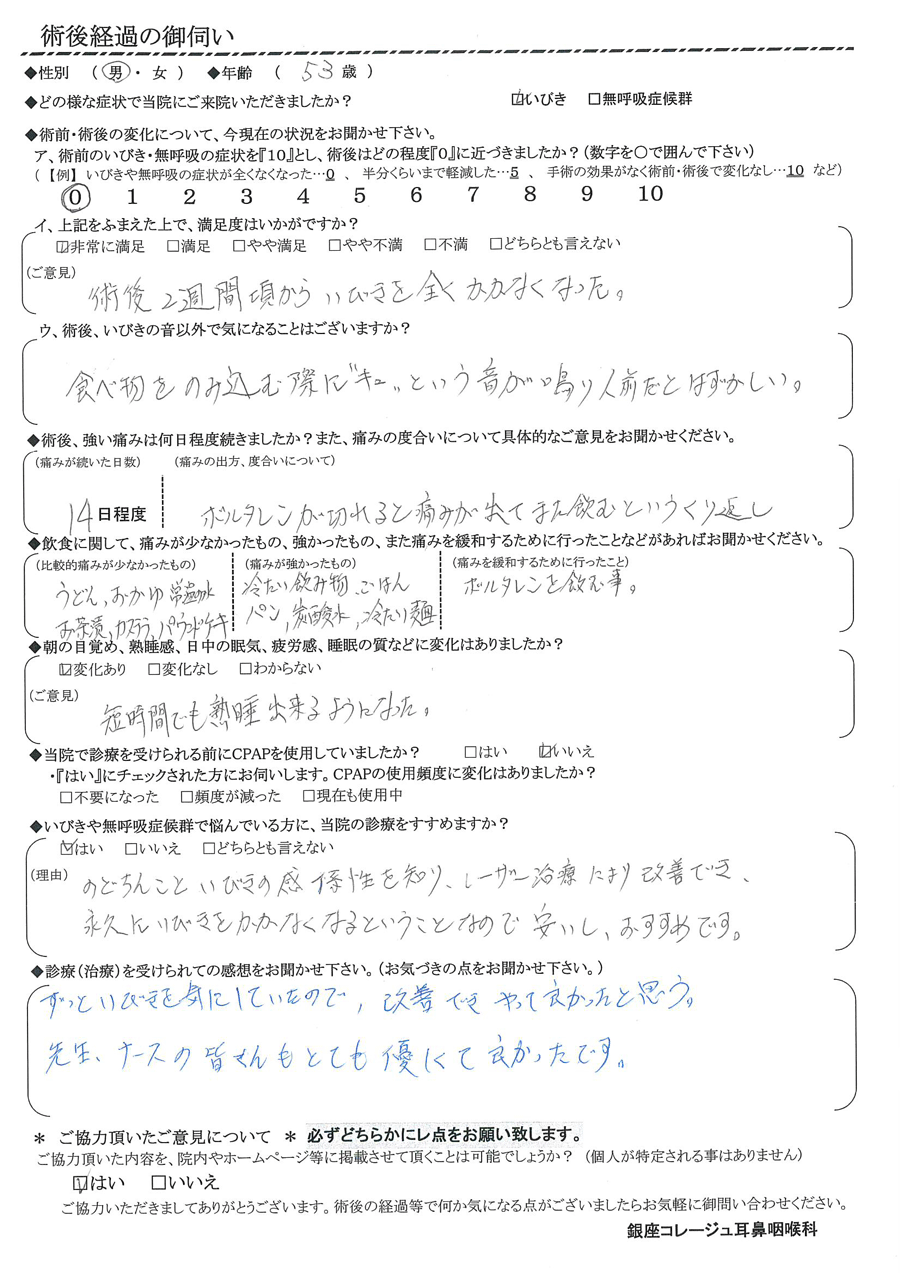 術後経過の御伺い
◆性別 （ 男 ・ 女 ） ◆年齢 （ 53 歳 ）
◆どの様な症状で当院にご来院いただきましたか？ ☑いびき □無呼吸症候群
◆術前・術後の変化について、今現在の状況をお聞かせ下さい。
ア、術前のいびき・無呼吸の症状を『10』とし、術後はどの程度『0』に近づきましたか？（数字を〇で囲んで下さい）
（【例】 いびきや無呼吸の症状が全くなくなった…0 、 半分くらいまで軽減した…5 、 手術の効果がなく術前・術後で変化なし…10 など）
0 1 2 3 4 5 6 7 8 9 10
イ、上記をふまえた上で、満足度はいかがですか？
☑非常に満足 □満足 □やや満足 □やや不満 □不満 □どちらとも言えない
（ご意見）
術後2週間頃からいびきを全くかかなくなった。
ウ、術後、いびきの音以外で気になることはございますか？
食べ物をのみ込む際に"キュー"という音が鳴り人前だとはずかしい。
◆術後、強い痛みは何日程度続きましたか？また、痛みの度合いについて具体的なご意見をお聞かせください。
（痛みが続いた日数） （痛みの出方、度合いについて）
14日程度 ボルタレンが切れると痛みが出てまた飲むというくり返し
◆飲食に関して、痛みが少なかったもの、強かったもの、また痛みを緩和するために行ったことなどがあればお聞かせください。
（比較的痛みが少なかったもの） （痛みが強かったもの） （痛みを緩和するために行ったこと）
うどん、おかゆ 常温水 冷たい飲み物、ごはん ボルタレンを飲む事。
お茶漬、カステラ、パウンドケーキ パン、炭酸水、冷たい麺
◆朝の目覚め、熟睡感、日中の眠気、疲労感、睡眠の質などに変化はありましたか？
☑変化あり □変化なし □わからない
（ご意見）
短時間でも熟睡出来るようになった。
◆当院で診療を受けられる前にCPAPを使用していましたか？ □はい ☑いいえ
・『はい』にチェックされた方にお伺いします。CPAPの使用頻度に変化はありましたか？
□不要になった □頻度が減った □現在も使用中
◆いびきや無呼吸症候群で悩んでいる方に、当院の診療をすすめますか？
☑はい □いいえ □どちらとも言えない
（理由）
のどちんこといびきの感係性を知り、レーザー治療により改善でき、
永久にいびきをかかなくなるということなので安いし、おすすめです。
◆診療（治療）を受けられての感想をお聞かせ下さい。（お気づきの点をお聞かせ下さい。）
ずっといびきを気にしていたので、改善できやって良かったと思う。
先生、ナースの皆さんもとても優くて良かったです。
＊ ご協力頂いたご意見について ＊ 必ずどちらかにレ点をお願い致します。
ご協力頂いた内容を、院内やホームページ等に掲載させて頂くことは可能でしょうか？ （個人が特定される事はありません）
☑はい □いいえ
ご協力いただきましてありがとうございます。術後の経過等で何か気になる点がございましたらお気軽に御問い合わせください。
銀座コレージュ耳鼻咽喉科